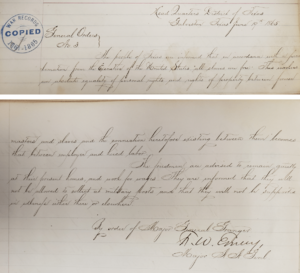 WAR RECORDS
COPIED
1861-1865
Head Quarters District of Texas
Galveston Texas June 19th 1865
General Orders
No. 3
The people of Texas are informed that in accordance with a proclamation from the Executive of the United States all slaves are free. This involves
an absolute equality of personal rights and rights of property between former
masters and slaves and the connection heretofore existing between them becomes
that between employer and hired labor.
The freedmen are advised to remain quietly
at their present homes and work for wages. They are informed that they will
not be allowed to collect at military posts and that they will not be supported
in idleness either there or elsewhere.
By order of Major General Granger
F.W. Emery
Major A.A. Genl